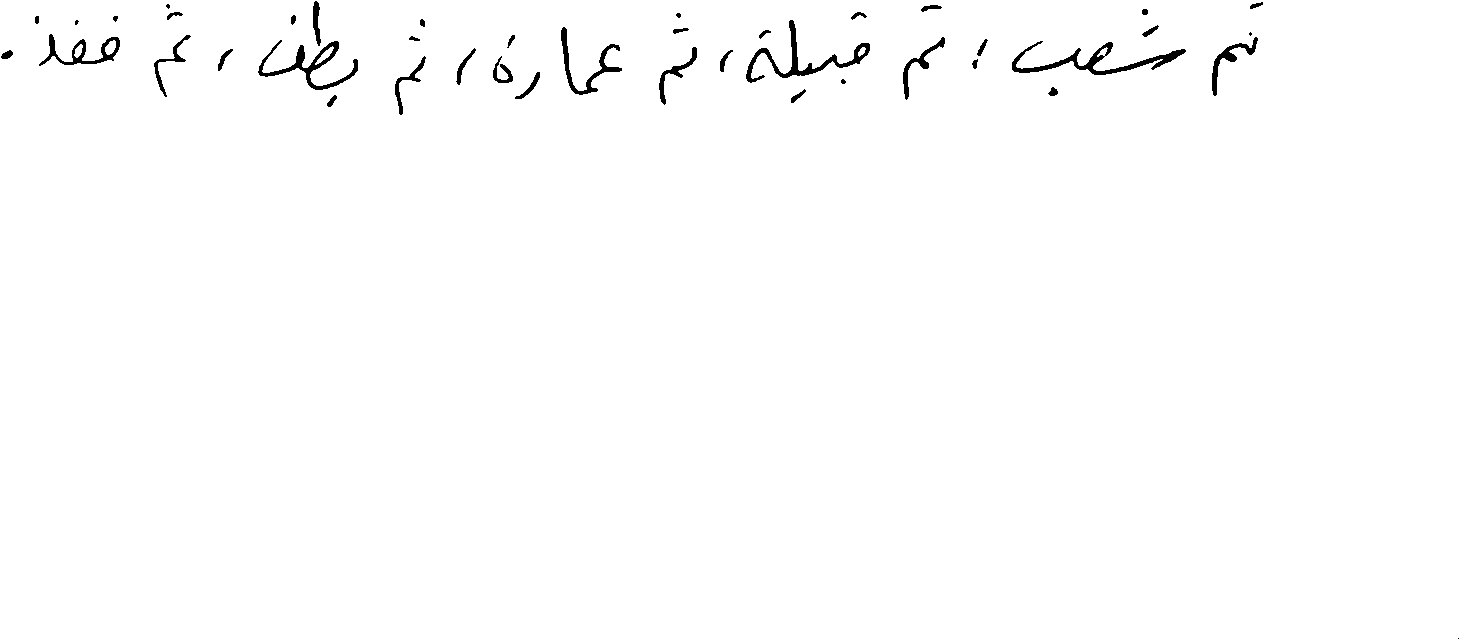 ثم شعب، ثم قبيلة، ثم عمارة، ثم بطن، ثم فخذ.